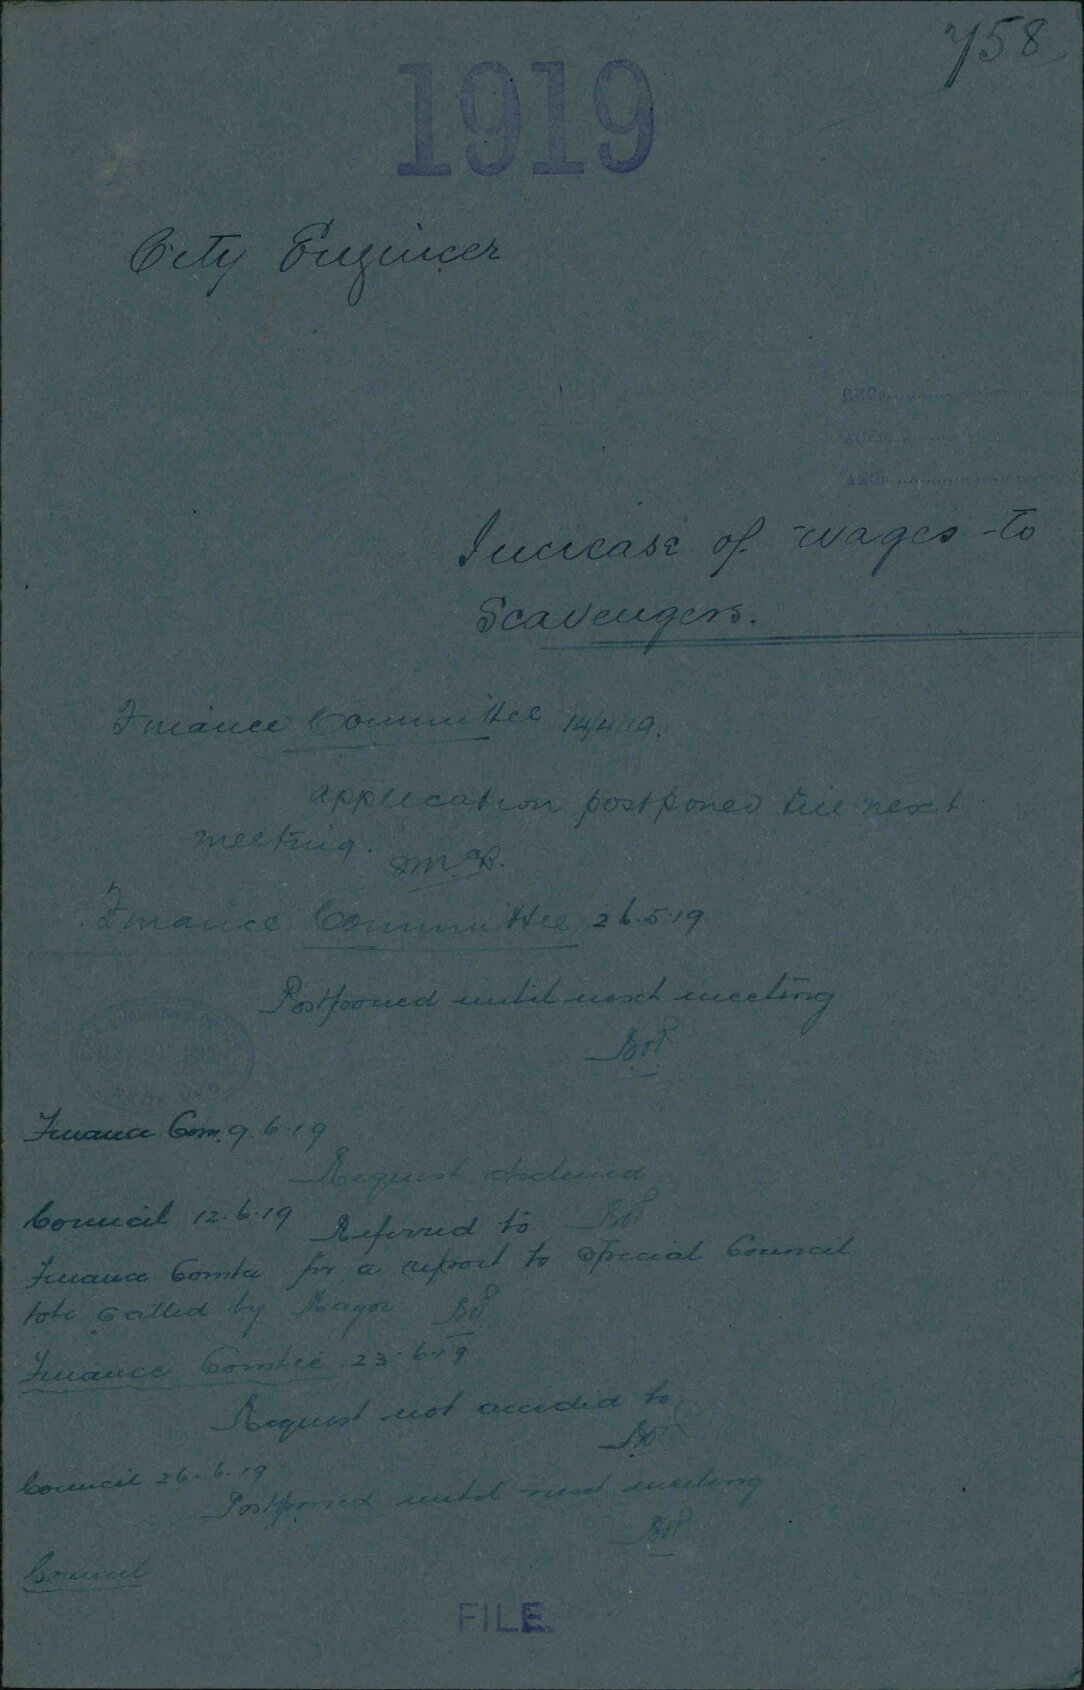 758
1919
City Engineer
REC'D
ACK'D
ANS'D
Increase of wages to
Scavengers.
Finance Committee 14/4/19.
application postponed till next
meeting.
Finance Committee 26.5.19
Postponed until next meeting
Finance Com. 9.6.19
Request declined
Council 12.6.19 Referred to
Finance Comte for a report to Special Council
to be called by Mayor
Finance Comtee 23.6.19
Request not acceded to
Council 26.6.19
Postponed until next meeting
Council
FILE.